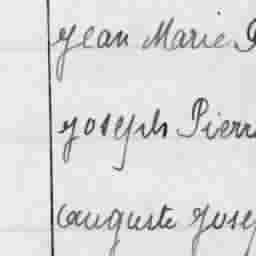 Jean Marie
Joseph Pierr
Auguste Jose